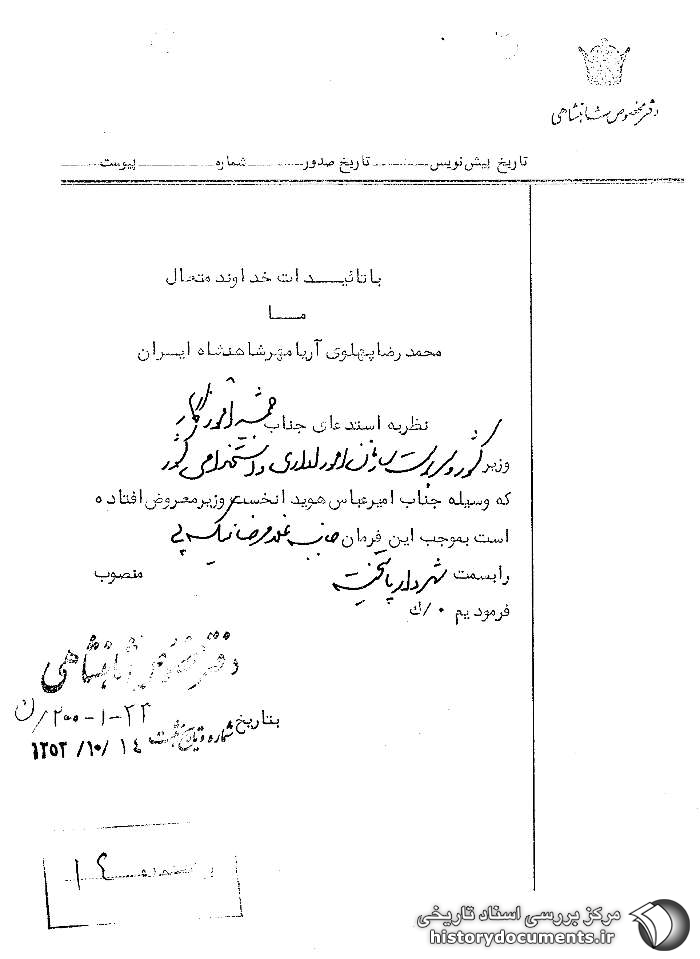 دفتر مخصوص شاهنشاهی
تاریخ پیش نویس ........ تاریخ صدور ........ شماره ........ پیوست ........
با تائیدات خداوند متعال
ما
محمد رضا پهلوی آریامهر شاهنشاه ایران
نظر به استدعای جناب جمشید آموزگار
وزیر کشور و سرپرست سازمان امور اداری و استخدامی کشور
که وسیله جناب امیرعباس هویدا نخست وزیر معروض افتاده
است بموجب این فرمان جناب غلامرضا نیک پی
را بسمت شهردار پایتخت منصوب
فرمودیم ۰/ک
دفتر مخصوص شاهنشاهی
۲۰۰-۱-۲۲/ن
بتاریخ شماره و تاریخ ثبت
۱۳۵۲/۱۰/۱۴
۱۴
مرکز بررسی اسناد تاریخی
historydocuments.ir